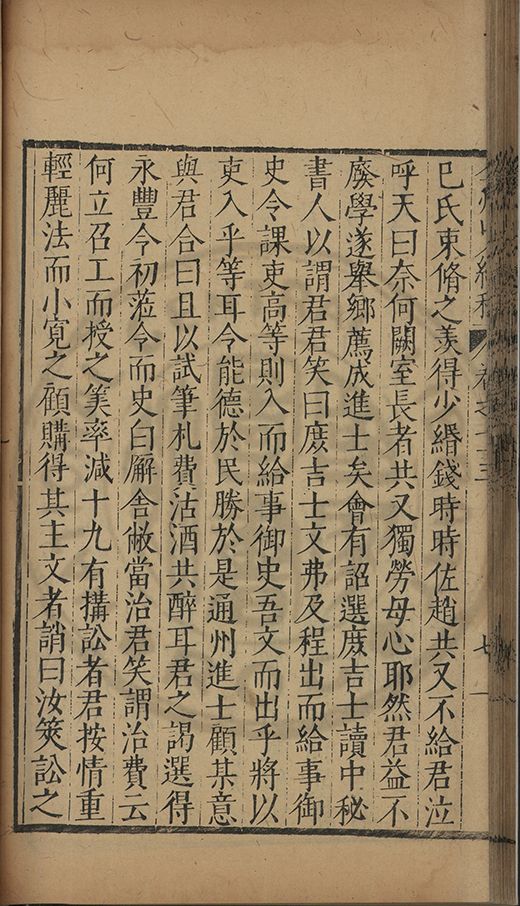 巳氏束脩之羨得少緡錢時時佐趙共又不給君泣
呼天曰奈何闕室長者共又獨勞母心耶然君益不
廢學遂舉鄉薦成進士矣會有詔選庻吉士讀中秘
書人以謂君君笑曰庻吉士文弗及程出而給事御
史令課吏高等則入而給事御史吾文而出乎將以
吏入乎等耳令能德於民勝於是通州進士顧某意
與君合曰且以試筆札費沽酒共醉耳君之謁選得
永豐令初蒞令而史白廨舍敝當治君笑謂治費云
何立召工而授之筭率減十九有搆訟者君按情重
輕麗法而小寛之顧購得其主文者誚曰汝筴訟之